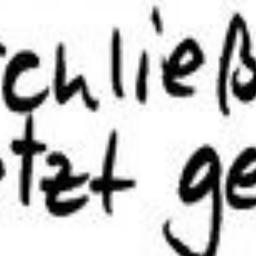 chließ
tzt ge